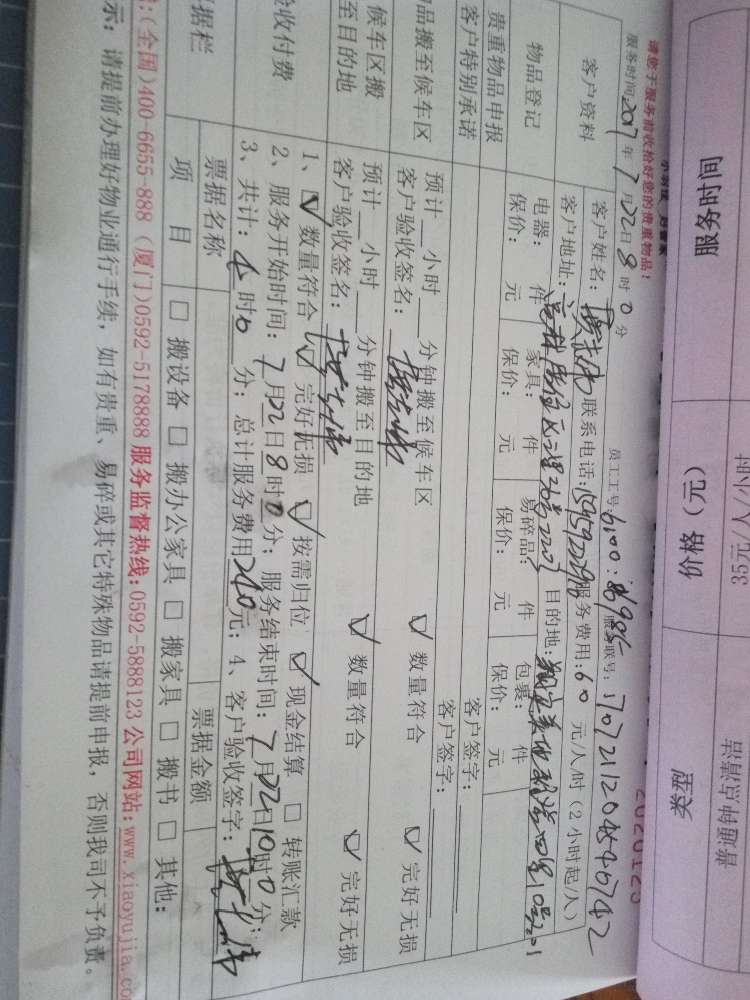 服务时间
价格（元）
类型
35元/人/小时
普通钟点清洁
2020123
请您于服务前收拾好您的贵重物品！
服务时间2017年7月22日8时0分
员工工号：6100：8698
服务联号：1707211204540742
客户资料
客户姓名：
联系电话：
服务费用：60元/人/时（2小时起/人）
客户地址：
目的地：
物品登记
电器：件
家具：件
易碎品：件
包裹：件
保价：元
保价：元
保价：元
保价：元
贵重物品申报
客户签字：
客户特别承诺
客户签字：
品搬至候车区
预计__小时__分钟搬至候车区
客户验收签名：
☑ 数量符合
☑ 完好无损
候车区搬
至目的地
预计__小时__分钟搬至目的地
客户验收签名：
☑ 数量符合
☑ 完好无损
验收付费
1、☑ 数量符合 ☑ 完好无损 ☑ 按需归位 ☑ 现金结算 □ 转账汇款
2、服务开始时间：7月22日8时0分；服务结束时间：7月22日10时0分；
3、共计：4时0分；总计服务费用240元；4、客户验收签字：
据栏
票据名称
票据金额
项目
□ 搬设备 □ 搬办公家具 □ 搬家具 □ 搬书 □ 其他：
：(全国)400-6655-888（厦门)0592-5178888 服务监督热线：0592-5888123 公司网站：www.xiaoyujia.co
示：请提前办理好物业通行手续，如有贵重、易碎或其它特殊物品请提前申报，否则我司不予负责。